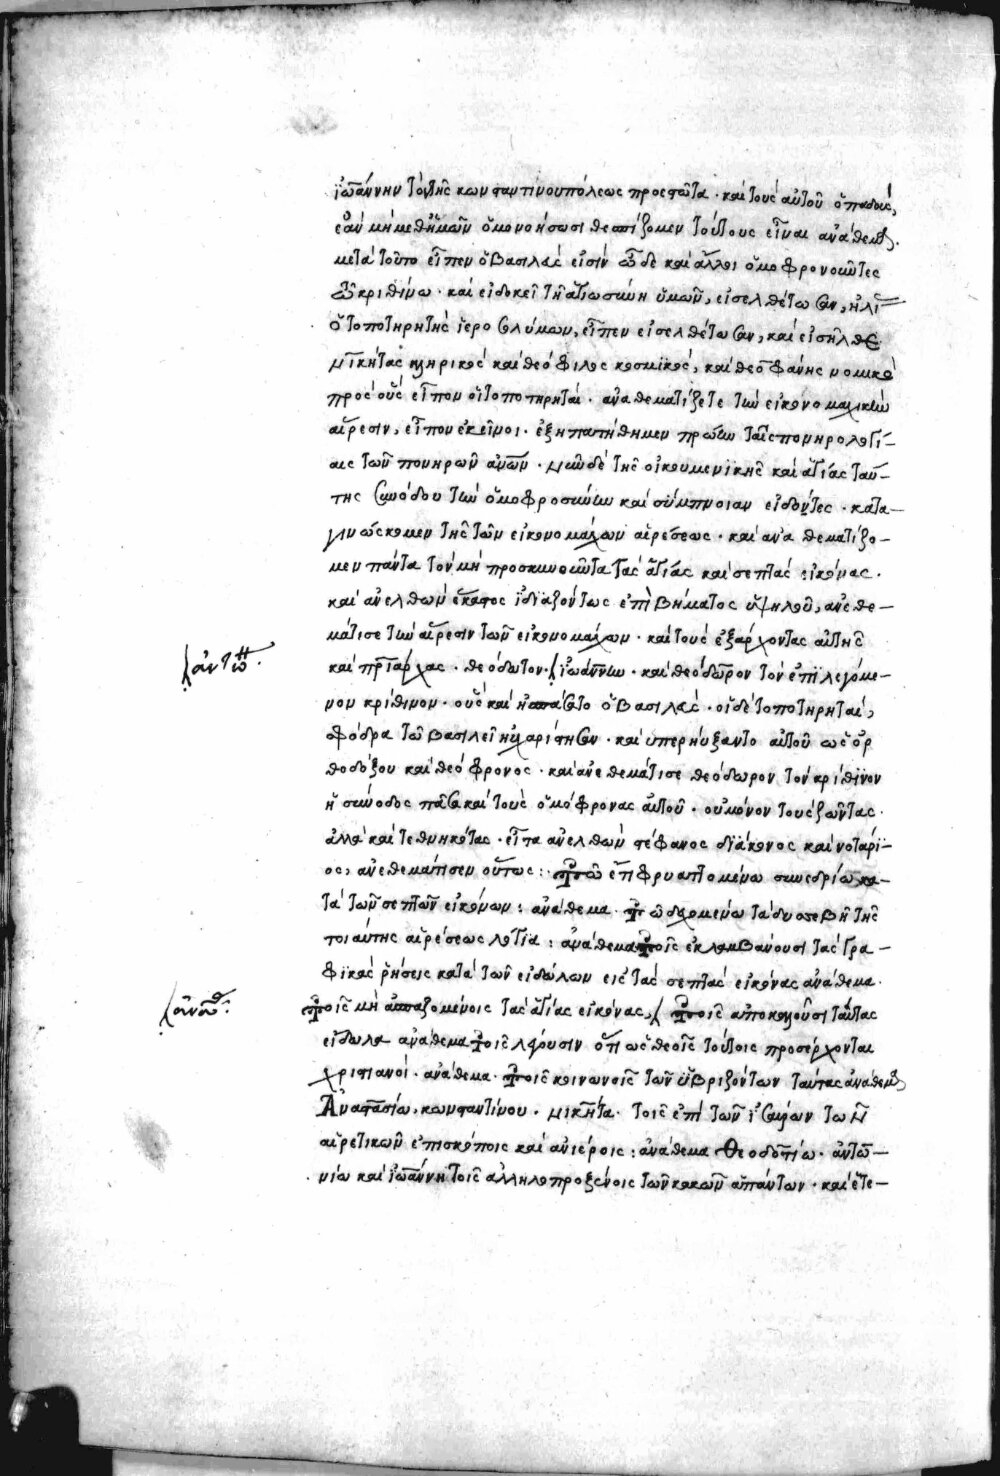 ἰωάννην τὸν τῆς κωνσταντινουπόλεως προεστῶτα · καὶ τοὺς αὐτοῦ ὀπαδούς,
ἐὰν μὴ μεθ' ἡμῶν ὁμονοήσωσι θεσπίζομεν τούτους εἶναι ἀνάθεμα.
μετὰ τοῦτο εἶπεν ὁ βασιλεύς εἰσὶν ὧδε καὶ ἄλλοι ὁμοφρονοῦντες
τῶ κριθίνω · καὶ εἰ δοκεῖ τῆ ἁγιωσύνη ὑμῶν, εἰσελθέτωσαν, ἠλί
ὁ τοποτηρητὴς ἱεροσολύμων, εἶπεν εἰσελθέτωσαν, καὶ εἰσῆλθε
νικήτας κληρικὸς καὶ θεόφιλος κοσμικός, καὶ θεοφάνης νομικὸς
πρὸς οὓς εἶπον οἱ τοποτηρηταί · ἀναθεματίζετε τὴν εἰκονομαχικὴν
αἵρεσιν, εἶπον ἐκεῖνοι · ἐξηπατήθημεν πρώην ταῖς πονηρολογί-
αις τῶν πονηρῶν ἀνῶν · νῦν δὲ τῆς οἰκουμενικῆς καὶ ἁγίας ταύ-
της συνόδου τὴν ὁμοφροσύνην καὶ σύμπνοιαν εἰδόντες · κατα-
γινώσκομεν τῆς τῶν εἰκονομάχων αἱρέσεως · καὶ αναθεματίζο-
μεν πάντα τὸν μὴ προσκυνοῦντα τὰς ἁγίας καὶ σεπτὰς εἰκόνας.
καὶ ἀνελθὼν ἕκαστος ἰδιαζόντως ἐπὶ βήματος ὑψηλοῦ, ἀνεθε-
μάτισε τὴν αἵρεσιν τῶν εἰκονομάχων · καὶ τοὺς ἐξάρχοντας αὐτῆς
καὶ πριάρχας · θεόδωτον · ἰωάννην · καὶ θεόδωρον τὸν ἐπιλεγόμε-
ἀντώ
νον κρίθινον · οὓς καὶ ἠσπάσατο ὁ βασιλεύς · οἱ δὲ τοποτηρηταί,
σφόδρα τῶ βασιλεῖ ηὐχαρίστησαν · καὶ υπερηύξαντο αὐτοῦ ὡς ὀρ
θοδόξου καὶ θεόφρονος · καὶ ἀνεθεμάτισε θεόδωρον τὸν κρίθινον
ἡ σύνοδος πᾶσα καὶ τοὺς ὁμόφρονας αὐτοῦ · οὐ μόνον τοὺς ζῶντας
ἀλλὰ καὶ τεθνηκότας · εἶτα ἀνελθὼν στέφανος διάκονος καὶ νοτάρι-
ος, ἀνεθεμάτισεν οὕτως : τῶ ἐπιφρυαττομένω συνεδρίω κα-
τὰ τῶν σεπτῶν εἰκόνων : ἀνάθεμα · τῶ δεχομένω τὰ δυσσεβῆ τῆς
τοιαύτης αἱρέσεως λόγια : ἀνάθεμα τοῖς ἐκλαμβάνουσι τὰς γρα-
φικὰς ῥήσεις κατὰ τῶν εἰδώλων εἰς τὰς σεπτὰς εἰκόνας ἀνάθεμα.
τοῖς μὴ ἀσπαζομένοις τὰς ἁγίας εἰκόνας, τοῖς ἀποκαλοῦσι ταύτας
ἀναθ
εἴδωλα ἀνάθεμα τοῖς λέγουσιν ὅτι ὡς θεοῖς τούτοις προσέρχονται
χριστιανοί · ἀνάθεμα · τοῖς κοινωνοῖς τῶν ὑβριζόντων ταύτας ἀνάθεμα
Ἀναστασίω, κωνσταντίνου · νικήτα · τοῖς ἐπὶ τῶν ἰσαύρων τῶν
αἱρετικῶν ἐπισκόποις καὶ ἀνιέροις : ἀνάθεμα θεοδότω · ἀντω-
νίω καὶ ἰωάννη τοῖς ἀλληλοπροξένοις τῶν κακῶν ἁπάντων · καὶ ἑτε-